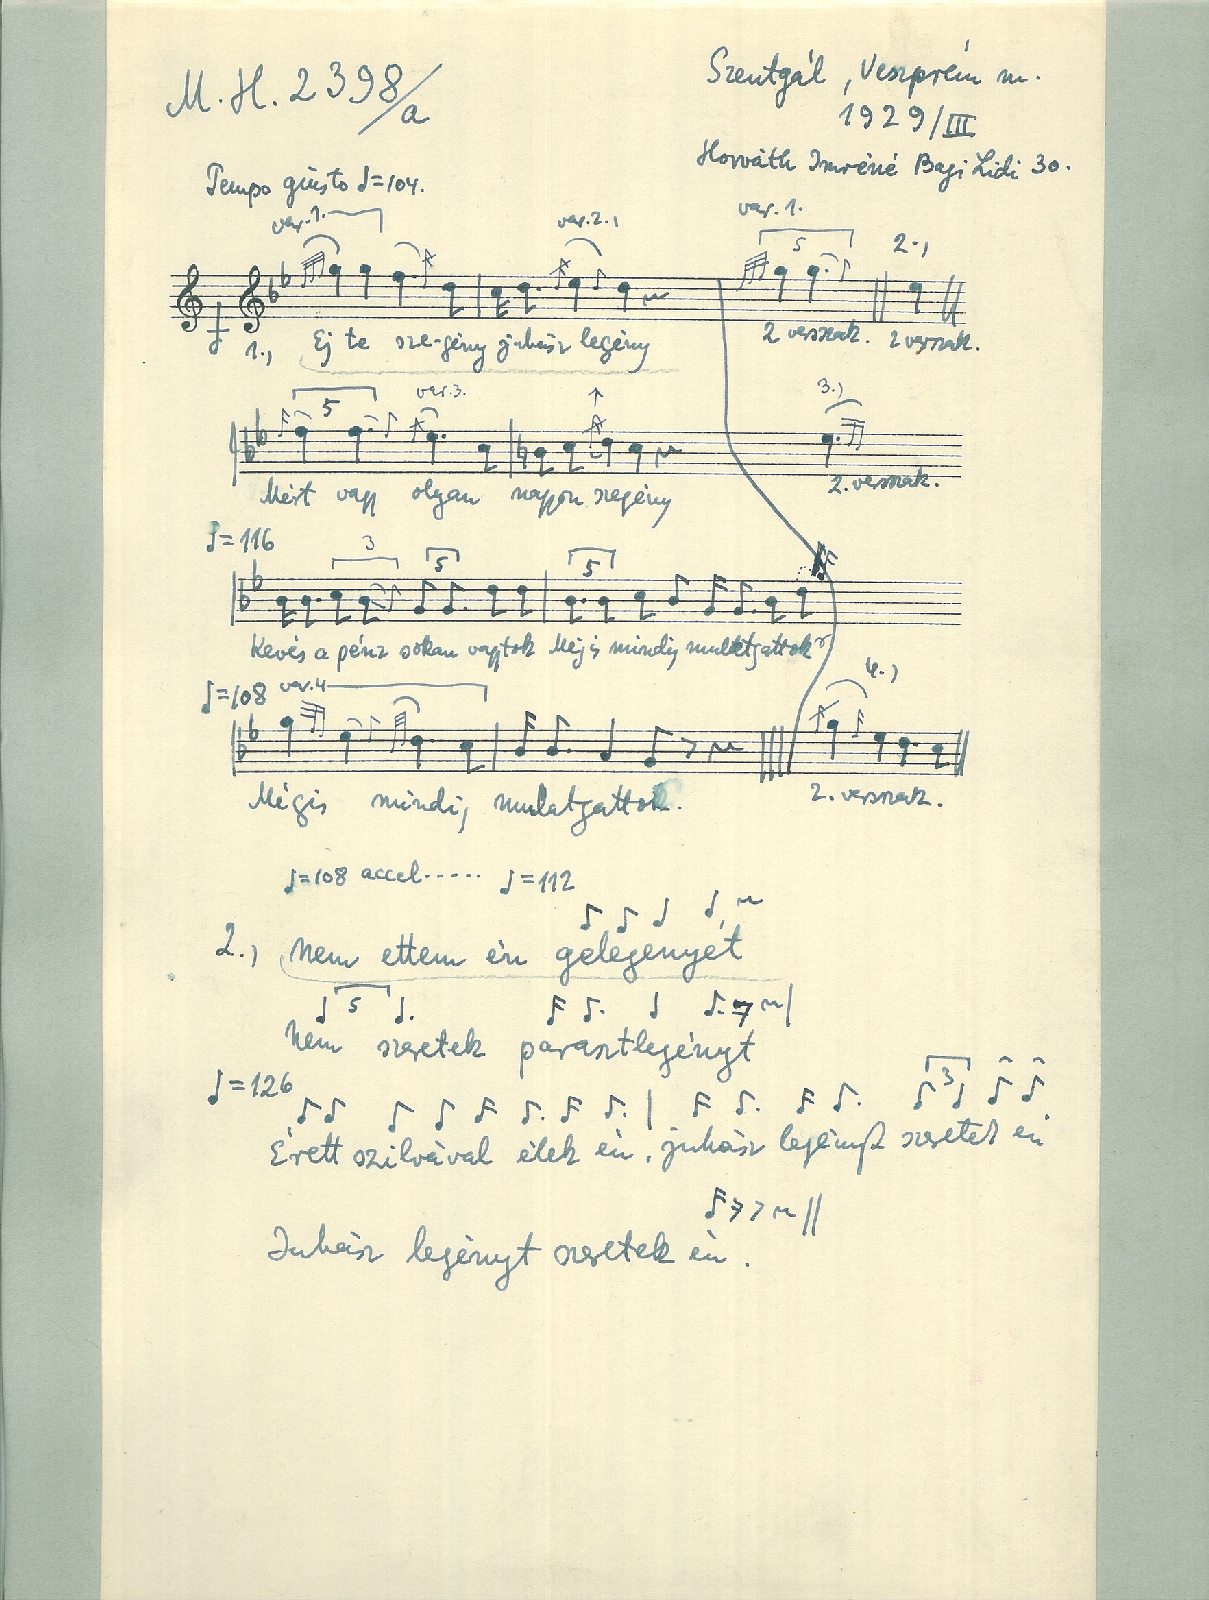 M. H. 2398/a
Szentgál, Veszprém m.
1929/III
Horváth Imréné Bagi Lidi 30.
Tempo giusto ♩=104.
var. 1. var. 2., var. 1.
5 2.,
1., Ej te sze-gény juhász legény 2 versszak. 2 versszak.
5 var. 3. 3.,
Mért vagy olyan nagyon szegény 2. versszak.
♩=116 3 5 5
Kevés a pénz sokan vagytok Mégis mindig mulatgattok
♩=108 var. 4 4.,
Mégis mindig mulatgattok. 2. versszak.
♩=108 accel...... ♩=112
2., Nem ettem én gelegenyét
5
Nem szeretek parasztlegényt
♩=126 3
Érett szilvával élek én, juhász legényt szeretek én
Juhász legényt szeretek én.